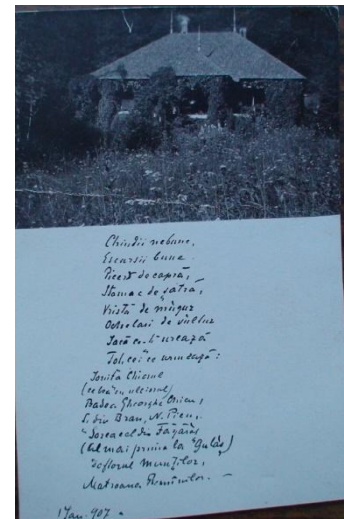 Chindii nebune,
Escursii bune.
Picior de capră,
Stomac de șatră,
Vrîstă de
Ochelari de vultur
Iacă ce-ți urează
Toți cei ce urmează:
Ioniță Chiorul
(cel cu ulciorul)
Badea Gheorghe
S. din Bran, N. Picu,
din Făgăraș
(Cel mai prima la "Gulás")
Doftorul Munților,
Matroana Românilor. —
1 Jan. 907